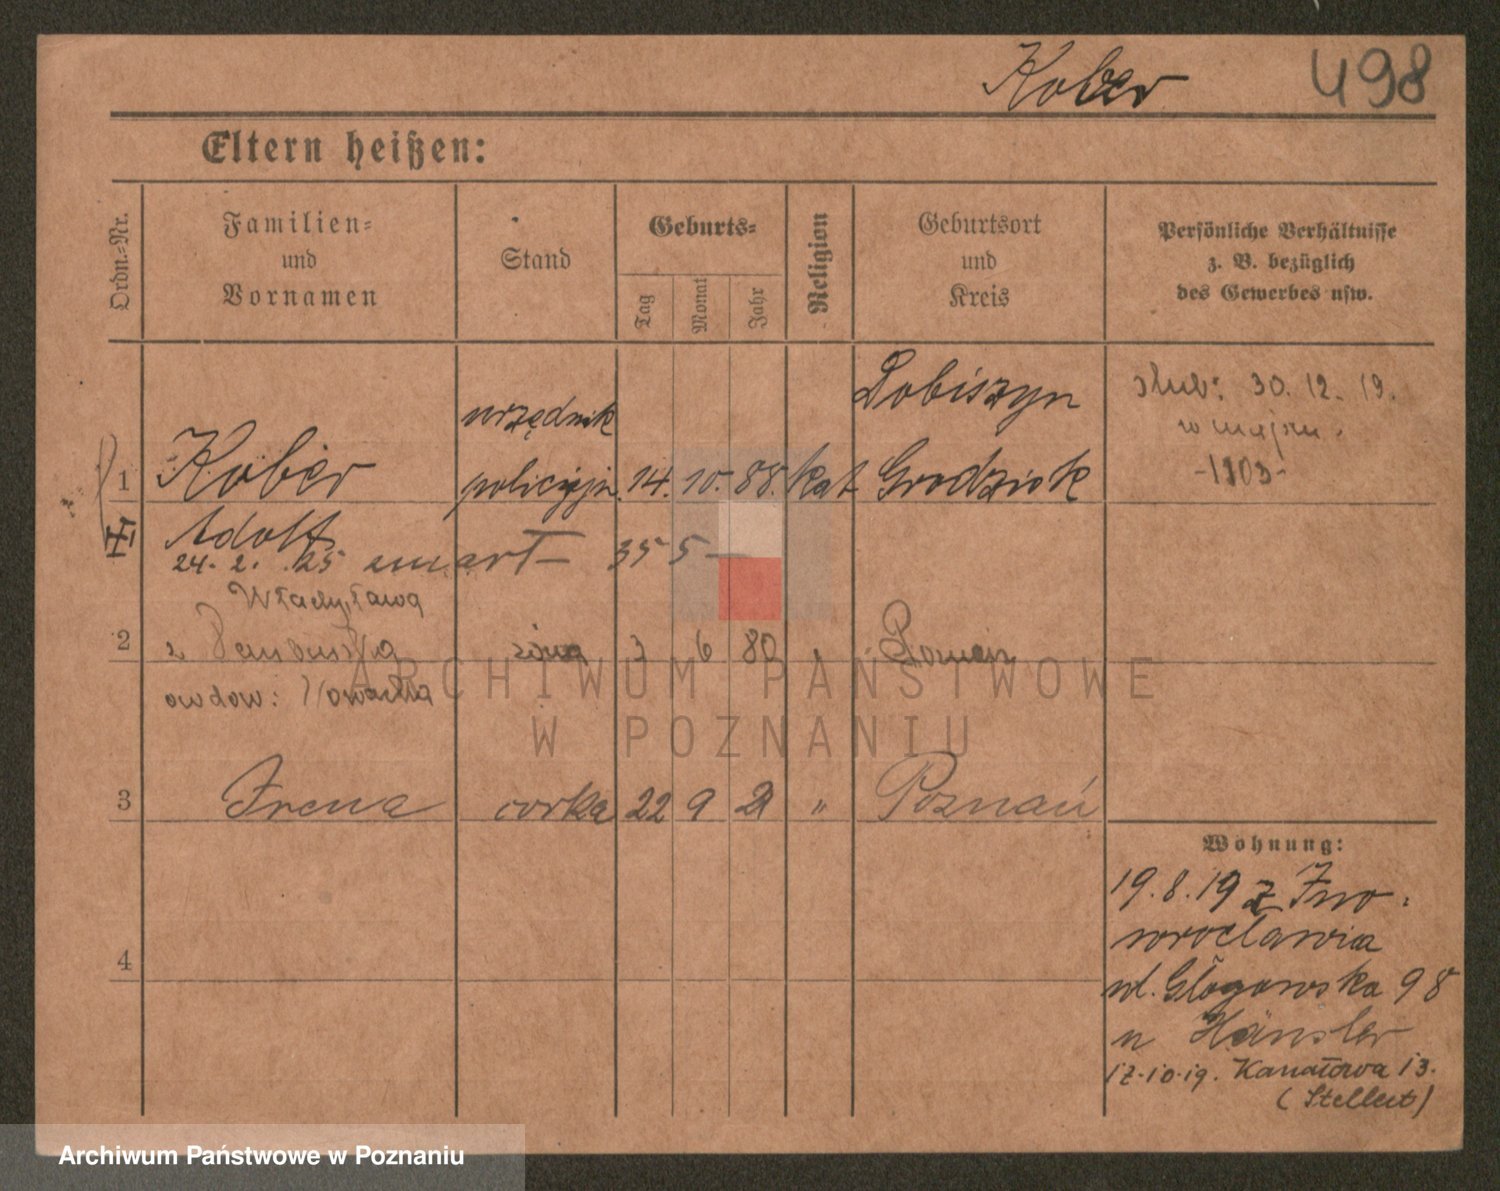 Kober 498
Eltern heißen:
Ordn.-Nr.
Familien=
und
Vornamen
Stand
Geburts=
Tag
Monat
Jahr
Religion
Geburtsort
und
Kreis
Persönliche Verhältnisse
z. B. bezüglich
des Gewerbes usw.
1 Kober
Adolf
urzędnik
policyjn.
14. 10. 88. kat
Dobiszyn
Grodzisk
ślub: 30. 12. 19.
w
-1103-
24. 2. 25 umarł — 355 —
Władysława
2 z
żona 3 6 80 "
owdow: Nowacka
3 Irena córka 22 9 21 " Poznań
4
Wohnung:
19.8.19 z Ino-
wrocławia
ul. Głogowska 98
u Hänsler
17.10.19. Kanałowa 13.
(Stellert)
ARCHIWUM PAŃSTWOWE
W POZNANIU
Archiwum Państwowe w Poznaniu